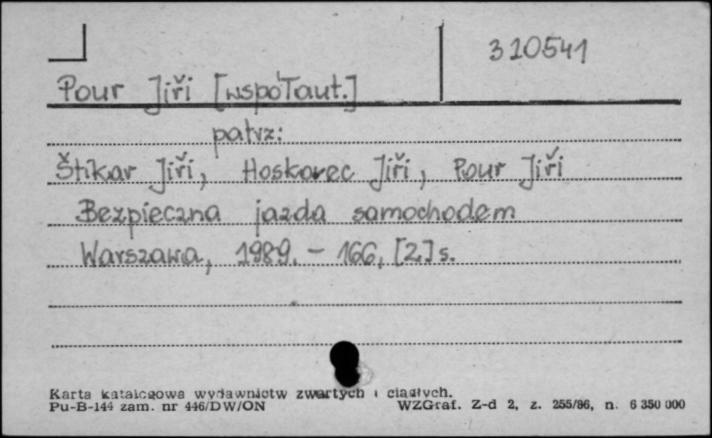 310541
Pour Jiří [współaut.]
patrz:
Štikar Jiří, Hoskovec Jiří, Pour Jiří
Bezpieczna jazda samochodem
Warszawa, 1989. – 166, [2] s.
Karta katalogowa wydawnictw zwartych i ciągłych.
Pu-B-144 zam. nr 446/DW/ON WZGraf. Z-d 2, z. 255/86, n. 6 350 000